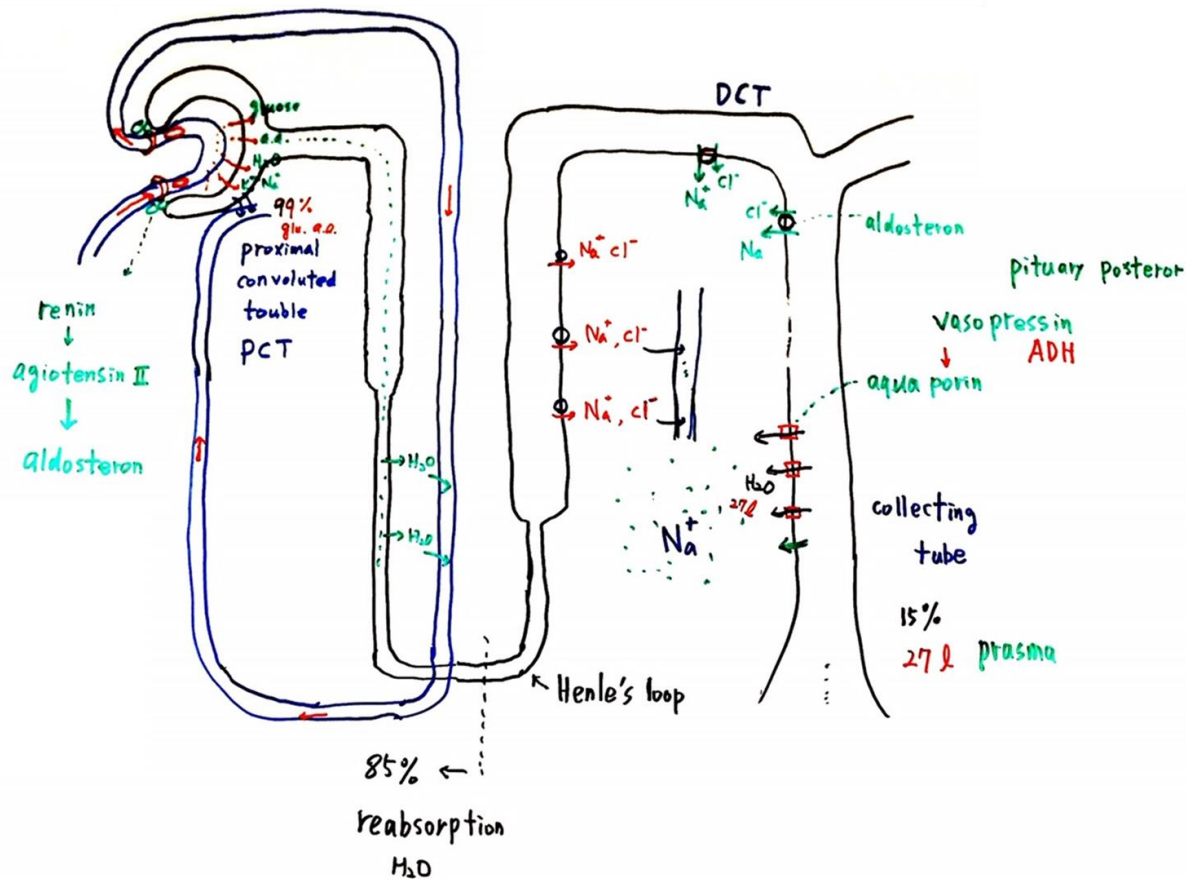 DCT
glucose
a.a
H2O
K+ Na+
99%
glu. a.a.
proximal
convoluted
touble
PCT
renin
↓
agiotensin II
↓
aldosteron
H2O
H2O
Na+ cl-
Na+, cl-
Na+, cl-
Na+ cl-
cl-
Na
aldosteron
pituary posteror
vasopressin
↓ ADH
aqua porin
H2O
27l
Na+
collecting
tube
15%
27 l prasma
Henle's loop
85% ←
reabsorption
H2O